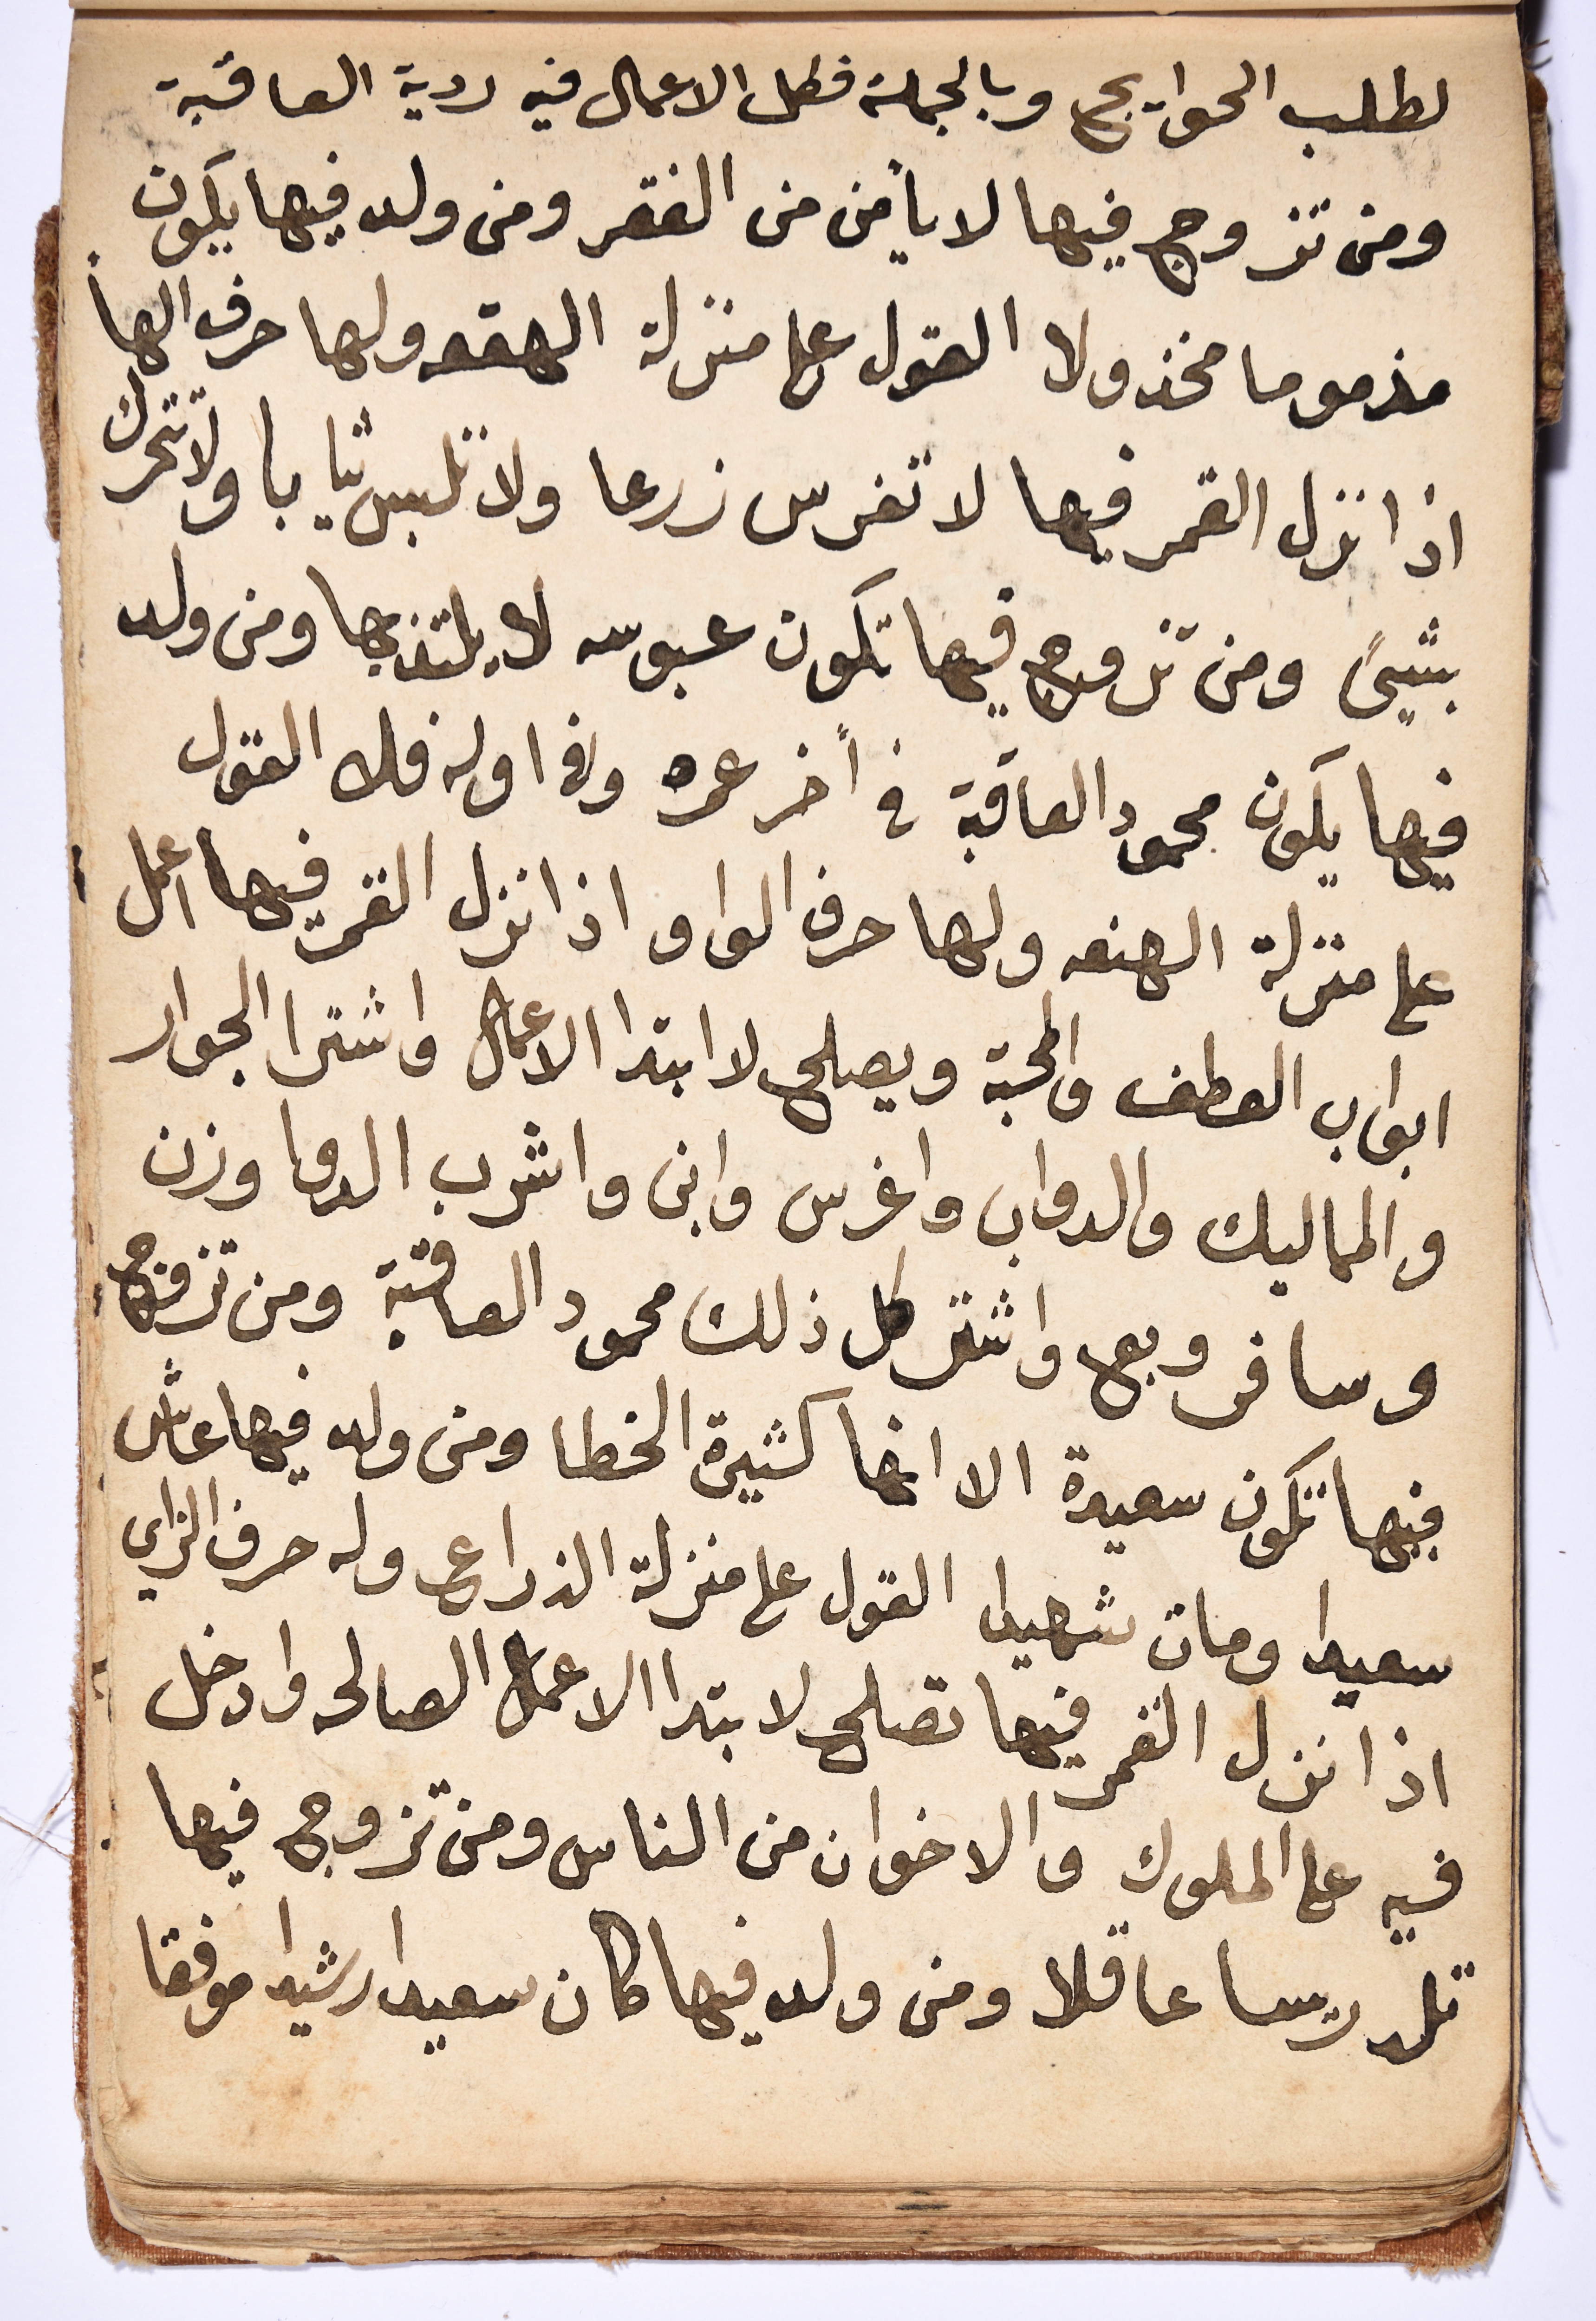 لطلب الحوايج وبالجملة فكل الاعمال فيه ردية العاقبة
ومن تزوج فيها لا يأمن من الفقر ومن ولد فيها يكون
مذموما مخذولا القول على منزلة الهقعه ولها حرف الهأ
اذا نزل القمر فيها لا تغرس زرعا ولا تلبس ثيابا ولا تتحرك
بشيئ ومن تزوج فيها تكون عبوسه لا يلتذ بها ومن ولد
فيها يكون محمود العاقبة في أخر عمره وفي اوله فلا القول
على منزلة الهنعه ولها حرف الواو اذا نزل القمر فيها اعمل
ابواب العطف والمحبة ويصلح لا ابتدا الاعمال واشترا الجوار
والمماليك والدواب واغرس وابن واشرب الدوا وزن
وسافر وبع واشتر كل ذلك محمود العاقبة ومن تزوج
فيها تكون سعيدة الا انها كثيرة الخطا ومن ولد فيها عاش
سعيدا ومات شهيدا القول على منزلة الذراع وله حرف الزاي
اذا نزل القمر فيها تصلح لا بتدا الاعمال الصالحه وادخل
فيه على الملوك والاخوان من الناس ومن تزوج فيها
تلد ريسا عاقلا ومن ولد فيها كان سعيدا رشيدا موفقا